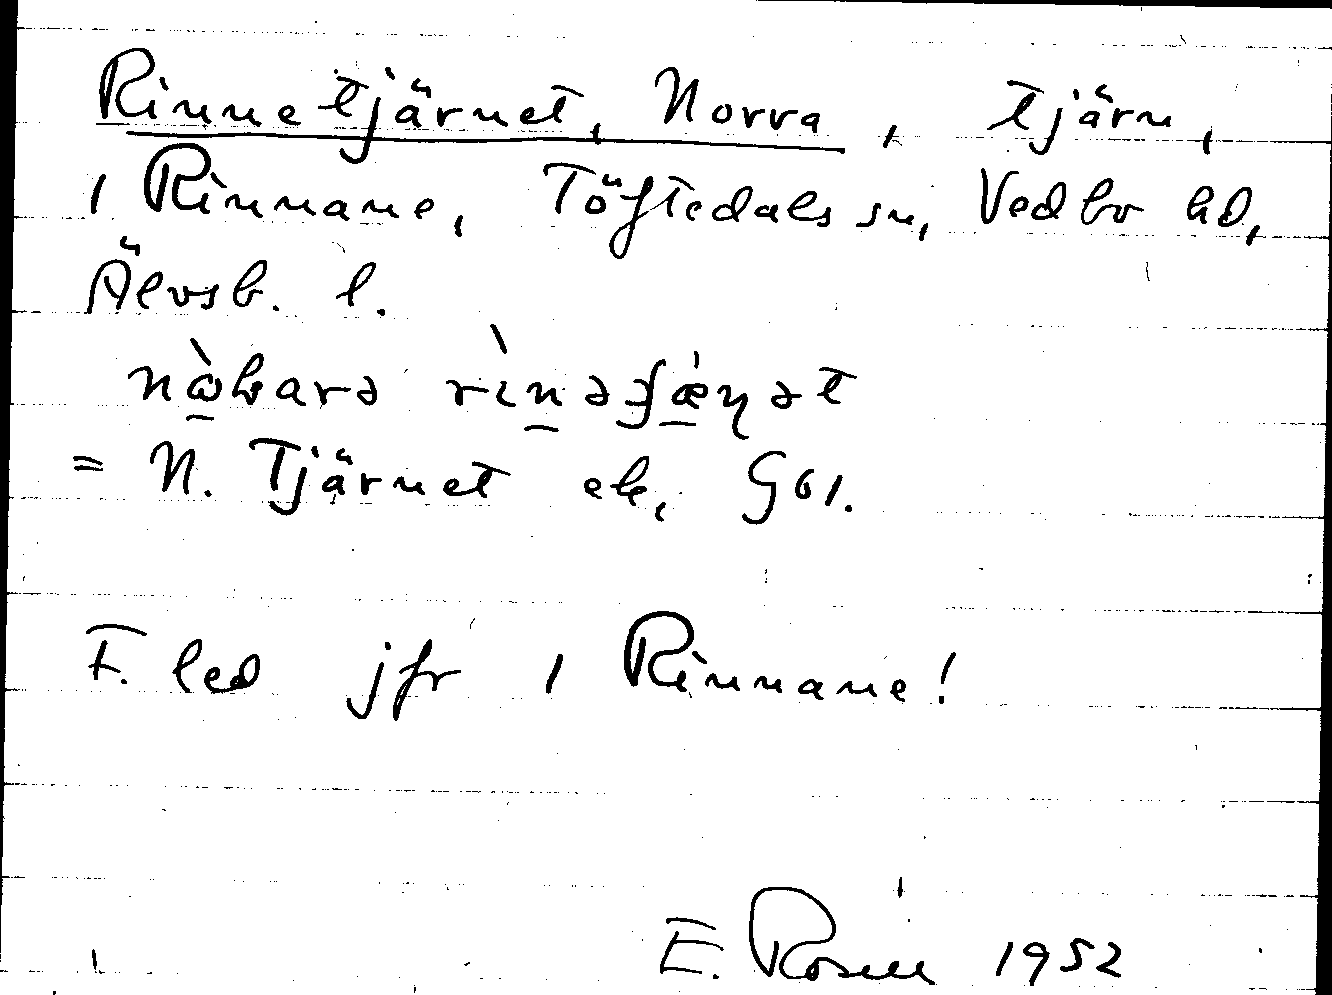 Rinnetjärnet, Norra, tjärn,
1 Rinnane, Töftedals sn, Vedbo hd,
Älvsb. l.
= N. Tjärnet ek, G61.
F. led jfr 1 Rinnane!
E. Rosén 1952